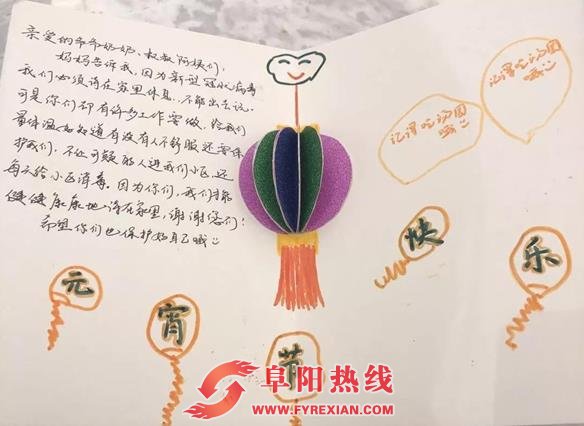 亲爱的爷爷奶奶、叔叔阿姨们:
妈妈告诉我,因为新型冠状病毒
我们必须待在家里休息,不能出去玩。
可是你们却有许多工作要做,给我们
量体温,如知道有没有人不舒服还要保
护我们,不让可疑的人进我们小区,还
每天给小区消毒。因为你们,我们才能
健健康康地待在家里,谢谢您们!
希望你们也保护好自己哦
记得吃汤圆
哦
记得吃汤圆
哦
元
宵
节
快
乐
阜阳热线
WWW.FYREXIAN.COM